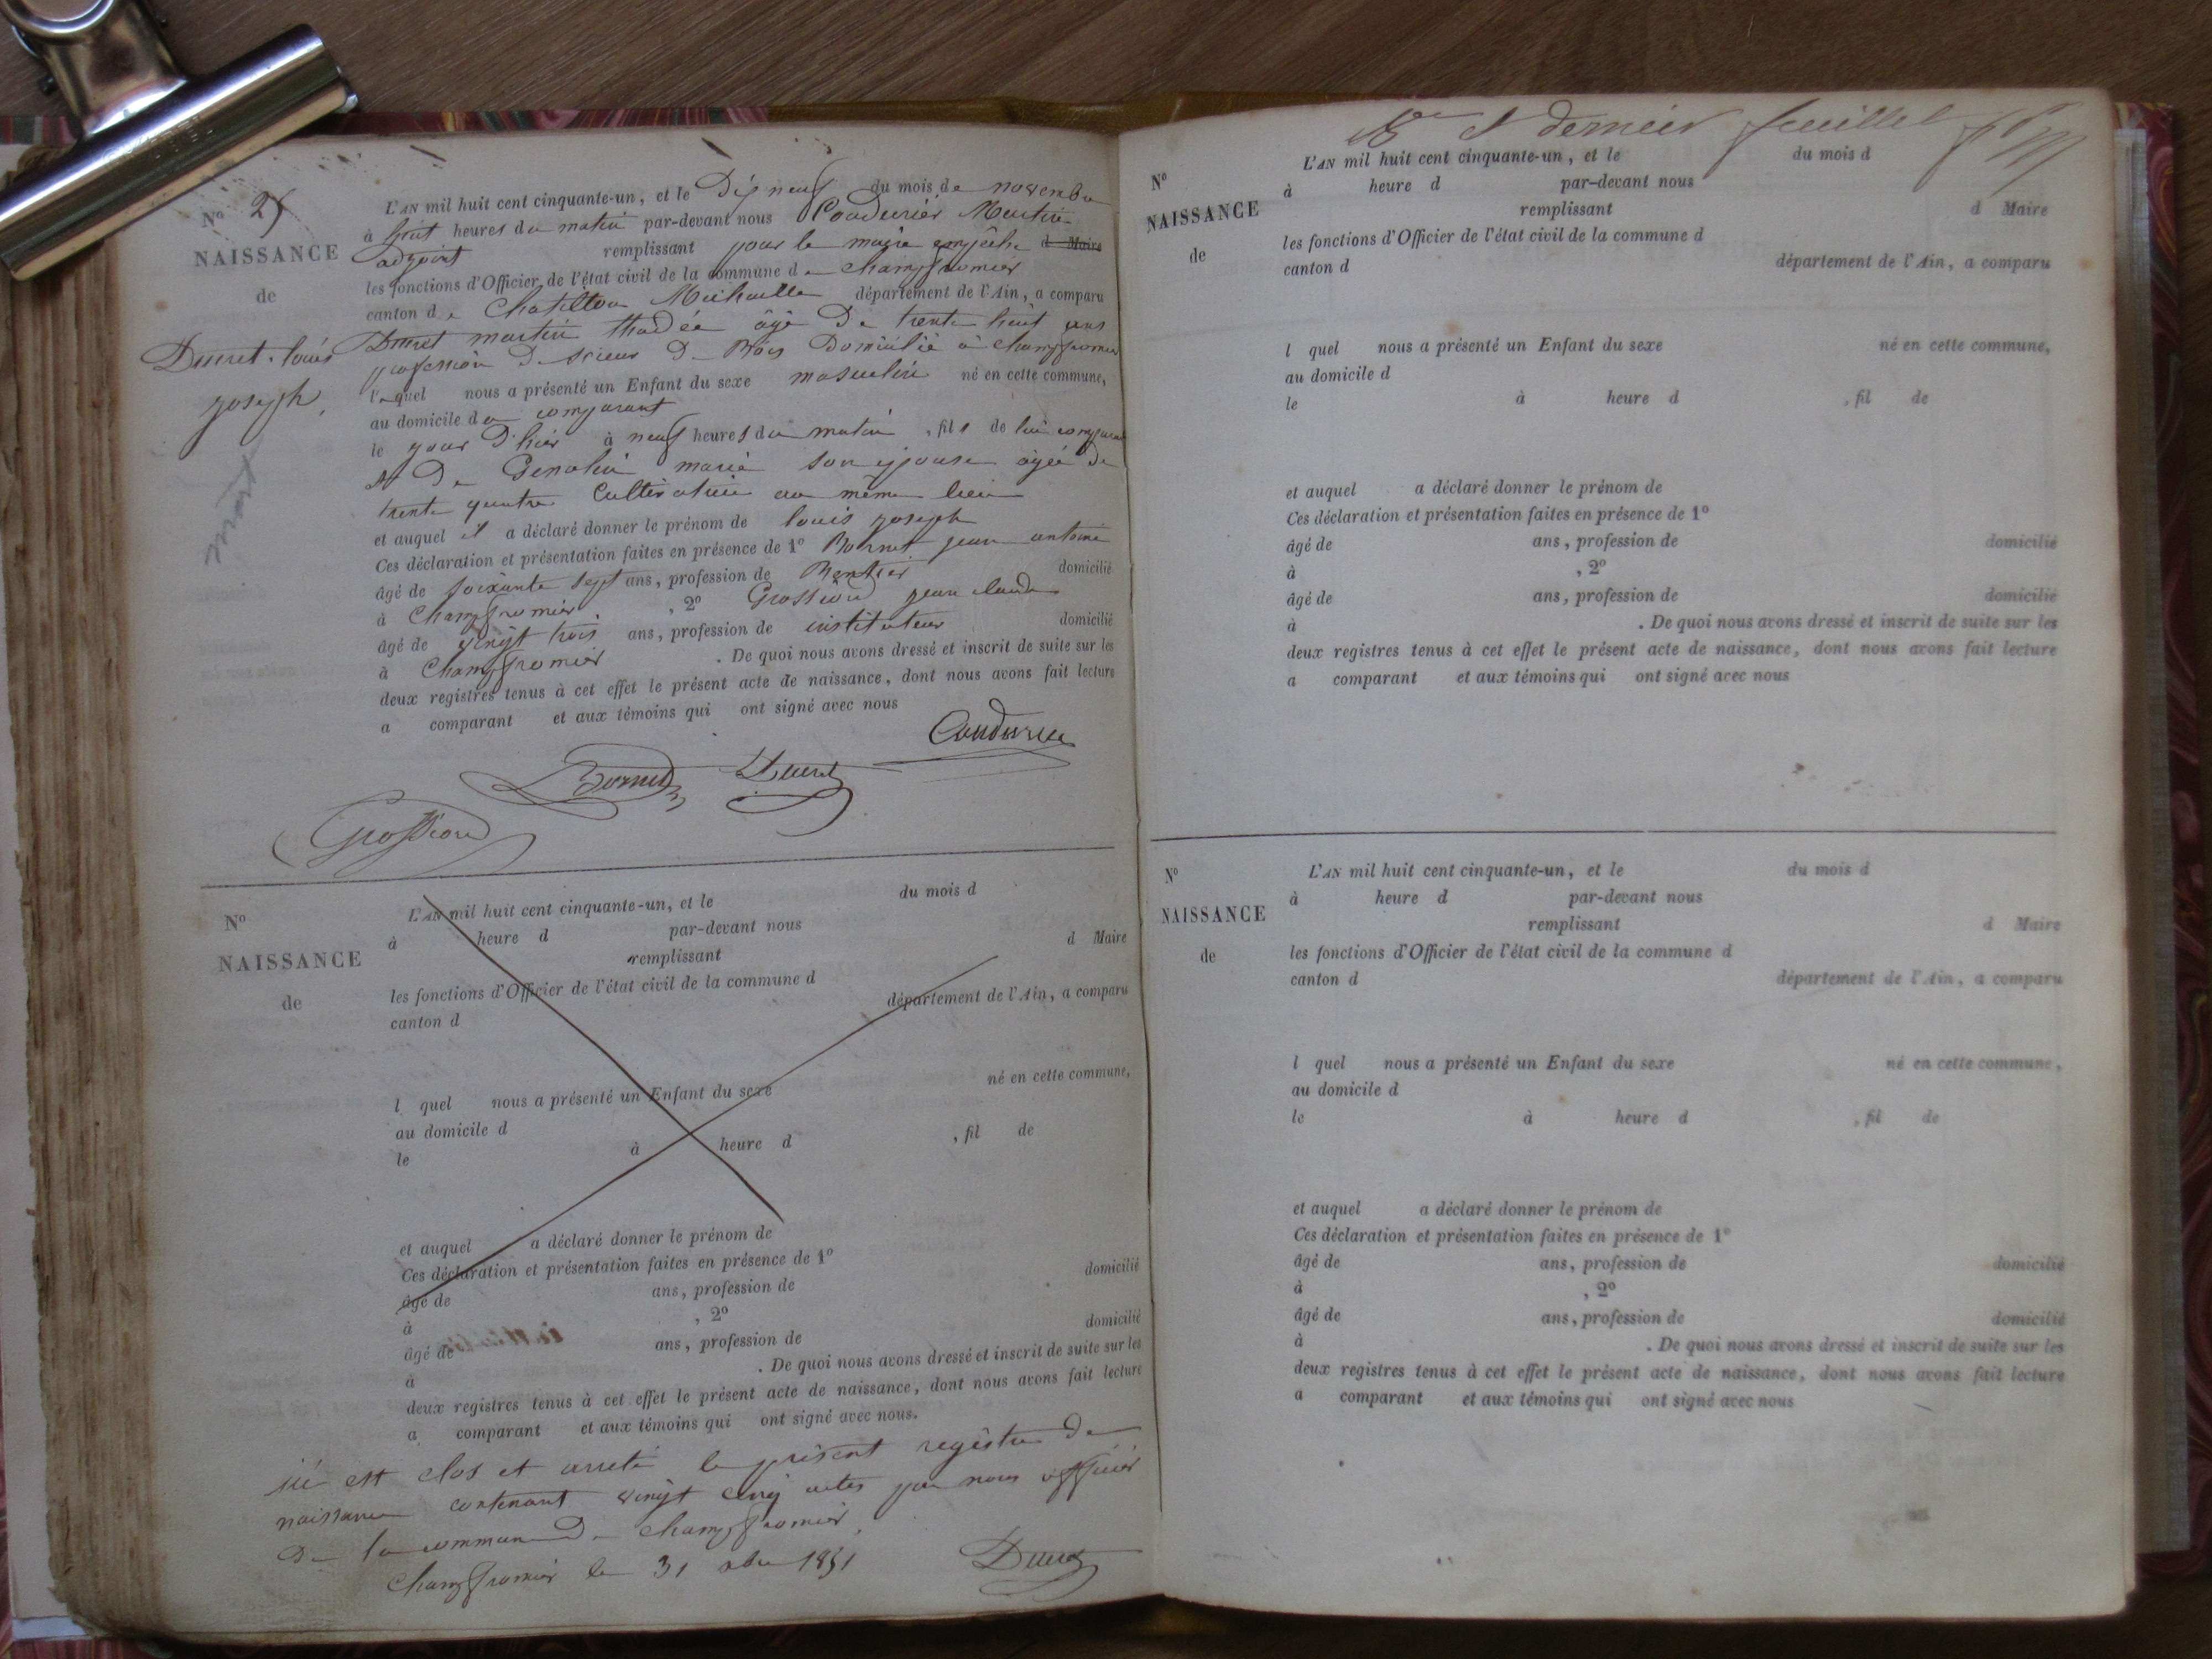 N° 25
NAISSANCE
de
Ducret louis
joseph
mort
L'AN mil huit cent cinquante-un, et le Dix neuf du mois de novembre
à huit heures du matin par-devant nous Coudurier Martin
adjoint remplissant pour le maire empêché d Maire
les fonctions d'Officier de l'état civil de la commune de Champfromier
canton de Chatillon Michaille département de l'Ain, a comparu
Ducret martin thadée âgé De trente huit ans
profession De scieur De Bois Domicilié à champfromier
lequel nous a présenté un Enfant du sexe masculin né en cette commune,
au domicile du comparant
le jour D'hier à neuf heures du matin, fils de lui comparant
et De Genolin marie son épouse âgée de
trente quatre Cultivatrice au même lieu
et auquel il a déclaré donner le prénom de louis joseph
Ces déclaration et présentation faites en présence de 1° Bornet jean antoine
âgé de soixante sept ans, profession de Rentier domicilié
à Champfromier, 2° Grossiord jean claude
âgé de vingt trois ans, profession de instituteur domicilié
à Champfromier. De quoi nous avons dressé et inscrit de suite sur les
deux registres tenus à cet effet le présent acte de naissance, dont nous avons fait lecture
a comparant et aux témoins qui ont signé avec nous
Coudurier
Bornet Ducret
Grossiord
N°
NAISSANCE
de
L'AN mil huit cent cinquante-un, et le du mois d
à heure d par-devant nous
remplissant d Maire
les fonctions d'Officier de l'état civil de la commune d
canton d département de l'Ain, a comparu
l quel nous a présenté un Enfant du sexe né en cette commune,
au domicile d
le à heure d , fil de
et auquel a déclaré donner le prénom de
Ces déclaration et présentation faites en présence de 1°
âgé de ans, profession de domicilié
à , 2°
âgé de ans, profession de domicilié
à . De quoi nous avons dressé et inscrit de suite sur les
deux registres tenus à cet effet le présent acte de naissance, dont nous avons fait lecture
a comparant et aux témoins qui ont signé avec nous.
icé est clos et arreté le présent registre De
naissance contenant vingt cinq actes par nous officier
De la commune De Champfromier,
Champfromier le 31 xbre 1851
Ducret
et dernier feuillet
N°
NAISSANCE
de
L'AN mil huit cent cinquante-un, et le du mois d
à heure d par-devant nous
remplissant d Maire
les fonctions d'Officier de l'état civil de la commune d
canton d département de l'Ain, a comparu
l quel nous a présenté un Enfant du sexe né en cette commune,
au domicile d
le à heure d , fil de
et auquel a déclaré donner le prénom de
Ces déclaration et présentation faites en présence de 1°
âgé de ans, profession de domicilié
à , 2°
âgé de ans, profession de domicilié
à . De quoi nous avons dressé et inscrit de suite sur les
deux registres tenus à cet effet le présent acte de naissance, dont nous avons fait lecture
a comparant et aux témoins qui ont signé avec nous
N°
NAISSANCE
de
L'AN mil huit cent cinquante-un, et le du mois d
à heure d par-devant nous
remplissant d Maire
les fonctions d'Officier de l'état civil de la commune d
canton d département de l'Ain, a comparu
l quel nous a présenté un Enfant du sexe né en cette commune,
au domicile d
le à heure d , fil de
et auquel a déclaré donner le prénom de
Ces déclaration et présentation faites en présence de 1°
âgé de ans, profession de domicilié
à , 2°
âgé de ans, profession de domicilié
à . De quoi nous avons dressé et inscrit de suite sur les
deux registres tenus à cet effet le présent acte de naissance, dont nous avons fait lecture
a comparant et aux témoins qui ont signé avec nous